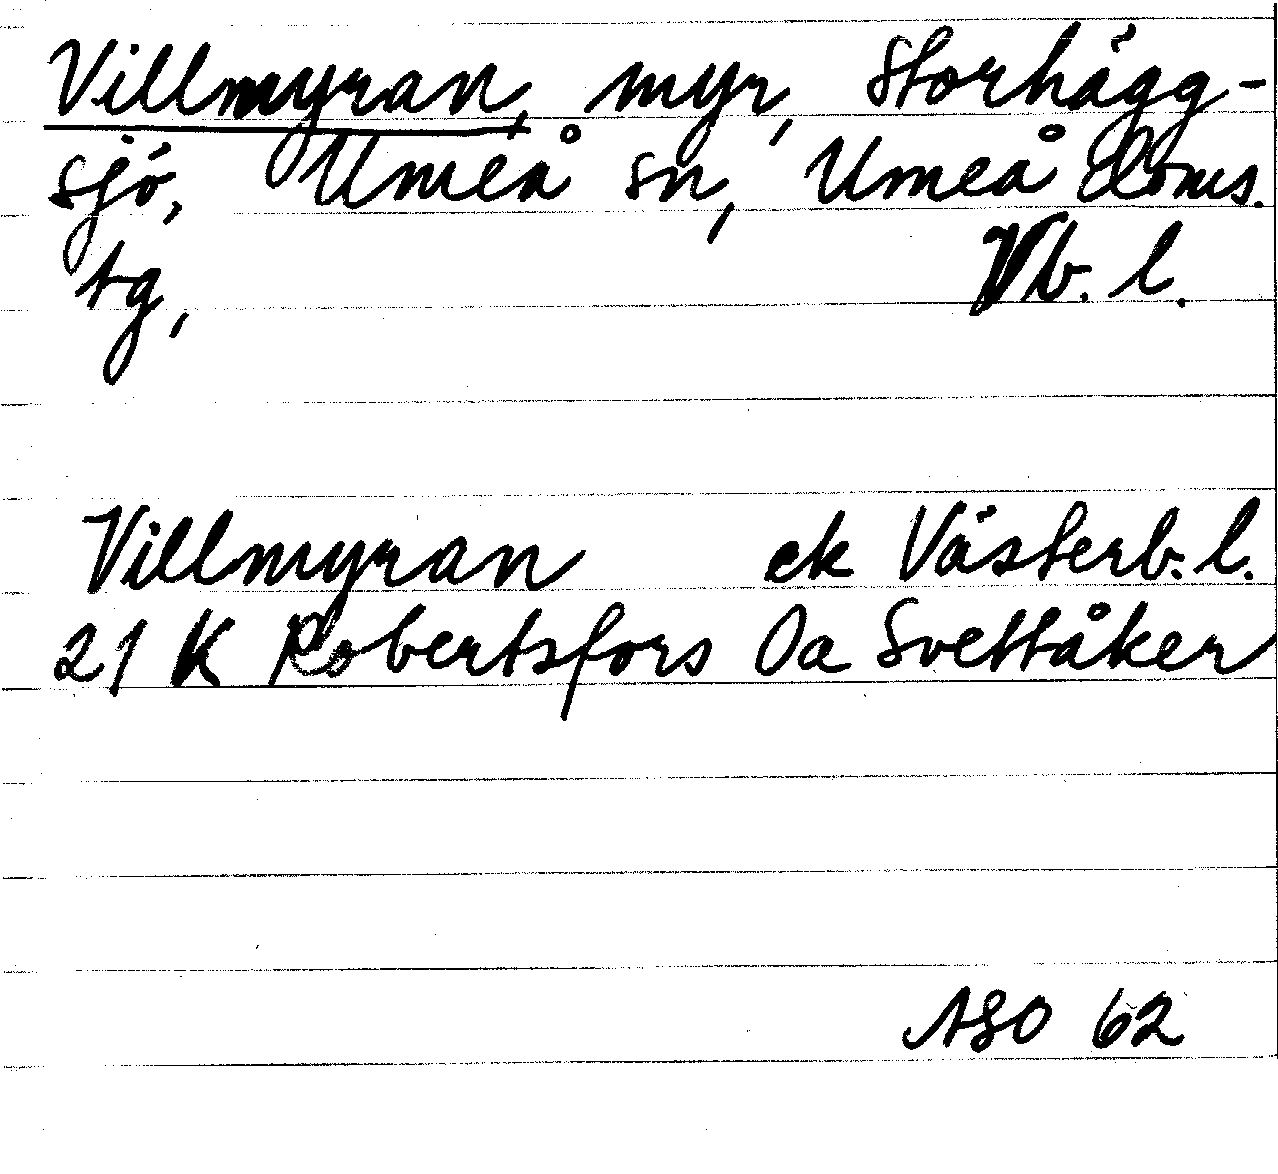 Villmyran, myr, Storhägg-
sjö, Umeå sn, Umeå doms.
tg, Vb. l.
Villmyran ek Västerb. l.
21 K Robertsfors Oa Svettåker
ASO 62